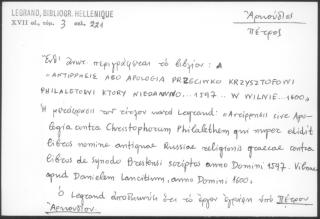 LEGRAND, BIBLIOGR. HELLENIQUE
XVII αἰ., τόμ. 3 σελ. 221
Ἀρκούδιος
Πέτρος
Ἐδῶ ὅπου περιγράφεται τὸ βιβλίον:
«ΑΝΤΙΡΡΗSIS ABO APOLOGIA PRZECIWKO KRZYSZTOFOWI
PHILALETOWI KTORY NIEDAWNO...1597.. W WILNIE...1600»
Ἡ μετάφρασις τοῦ τίτλου κατὰ Legrand: «Antirrhesis sive Apo-
logia contra Christophorum Philalethem qui nuper edidit
libros nomine antiquae Russiae religionis graecae contra
libros de Synodo Brestensi scriptos anno Domini 1597. Vilnae
apud Danielem Lancitium, anno Domini 1600».
Ὁ Legrand ὅτι τὸ ἔργον ἔγραψεν ὁ Πέτρος
Ἀρκούδιος.